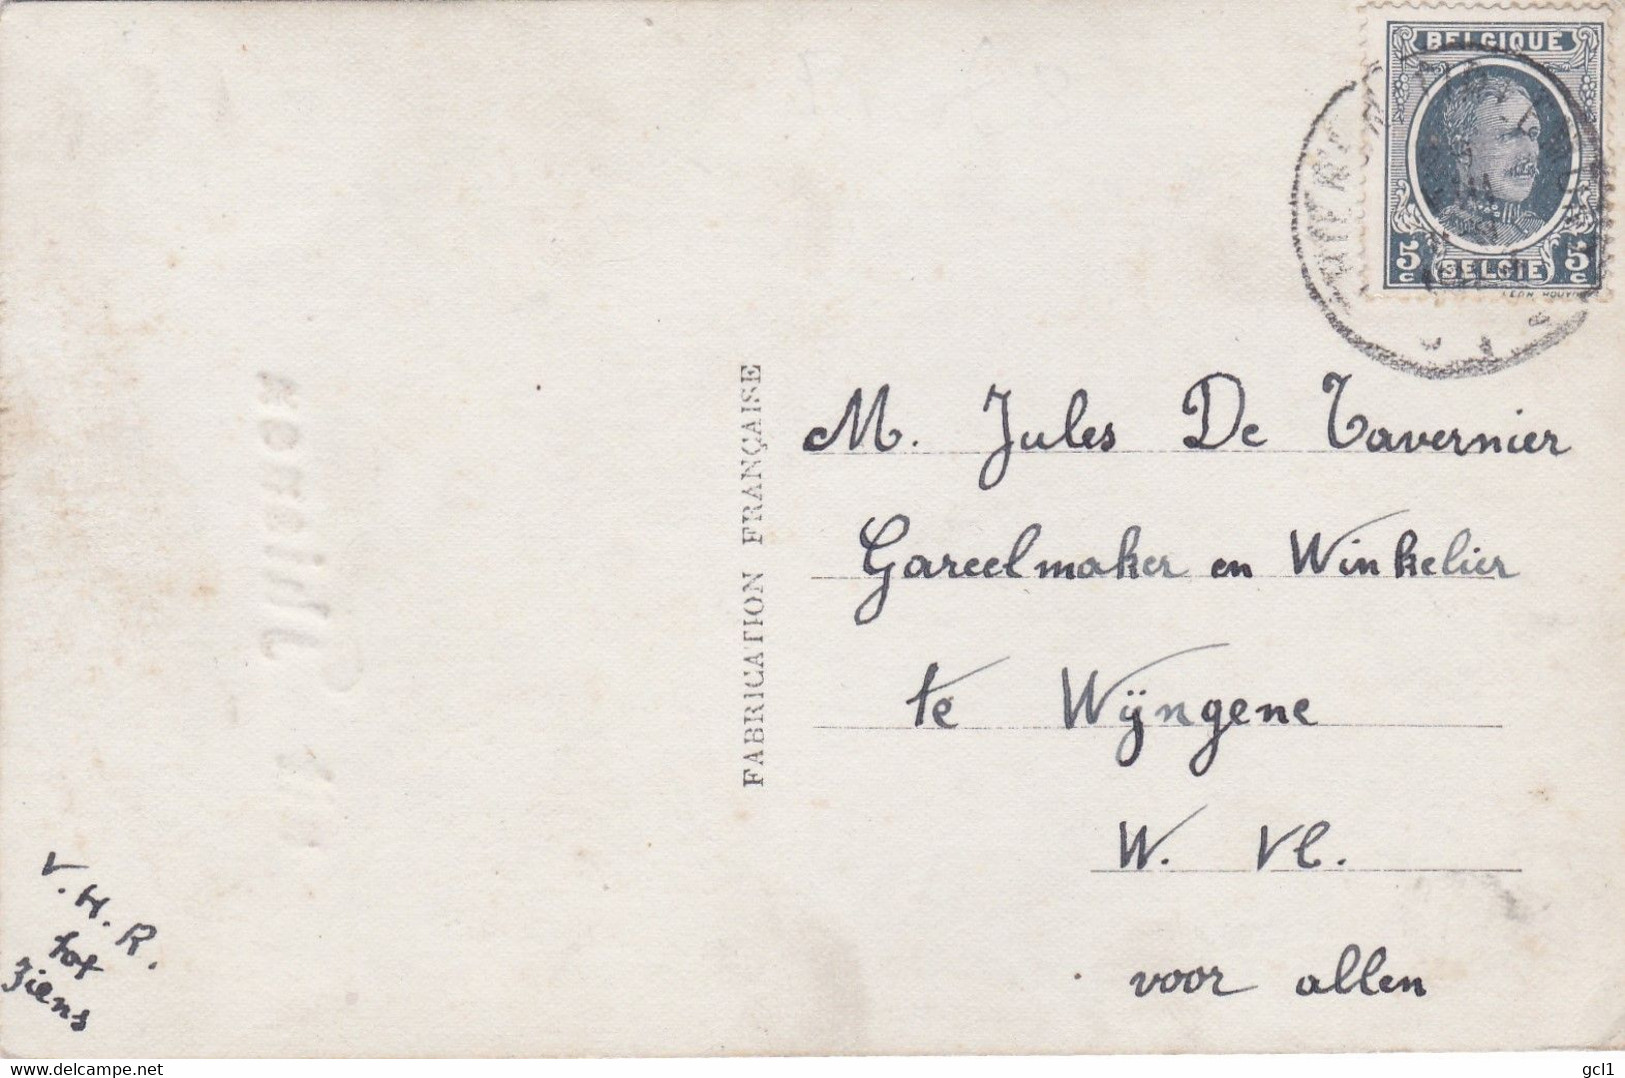 BELGIQUE
5c BELGIË 5c
M. Jules De Tavernier
Gareelmaker en Winkelier
te Wÿngene
W. Vl.
voor allen
FABRICATION FRANÇAISE
V.H.R.
tot
Ziens
delcampe.net
gcl1